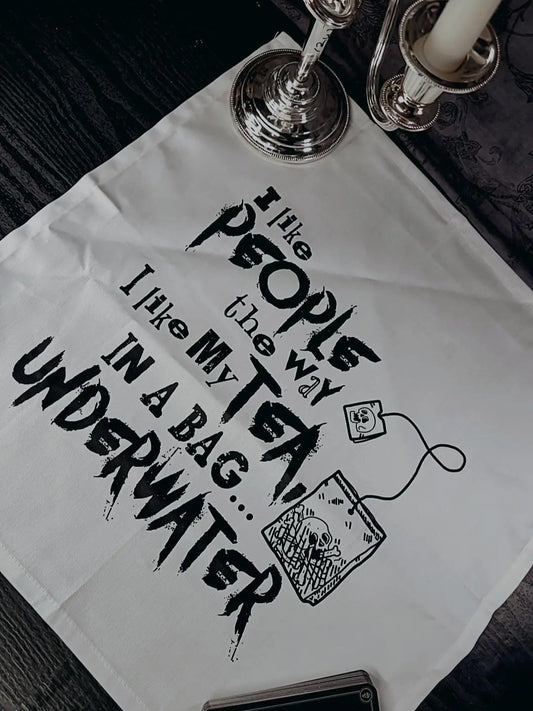 I like
PEOPLE
the way
I like My
TEA,
IN A BAG...
UNDERWATER